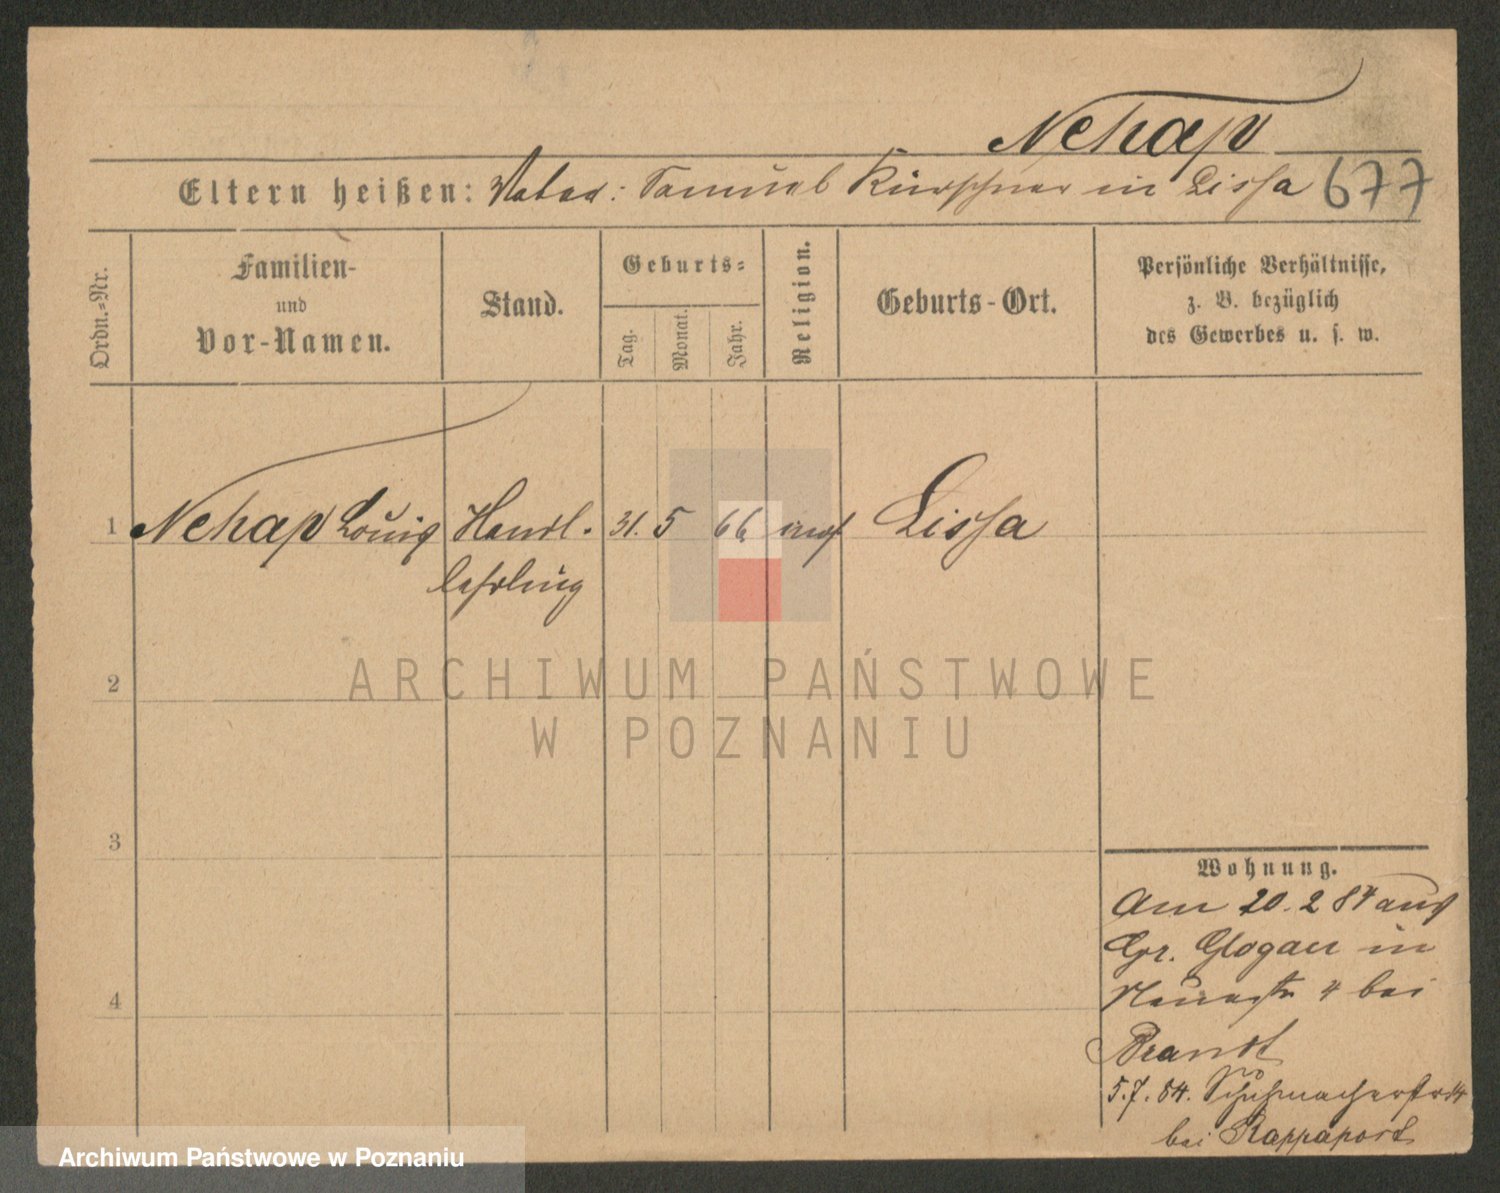 Nehab
Eltern heißen: Vater: Samuel Kürschner in Lissa 677
Ordn.-Nr.
Familien-
und
Vor-Namen.
Stand.
Geburts-
Tag.
Monat.
Jahr.
Religion.
Geburts-Ort.
Persönliche Verhältnisse,
z. B. bezüglich
des Gewerbes u. s. w.
1 Nehab Louis Handl. 31. 5 66 mos Lissa
lehrling
2
3
4
Wohnung.
Am 20.2 84 aus
Gr. Glogau in
Neuestr 4 bei
Brandt
5.7.84. Schuhmacherstr 14
bei Rappaport
ARCHIWUM PAŃSTWOWE
W POZNANIU
Archiwum Państwowe w Poznaniu